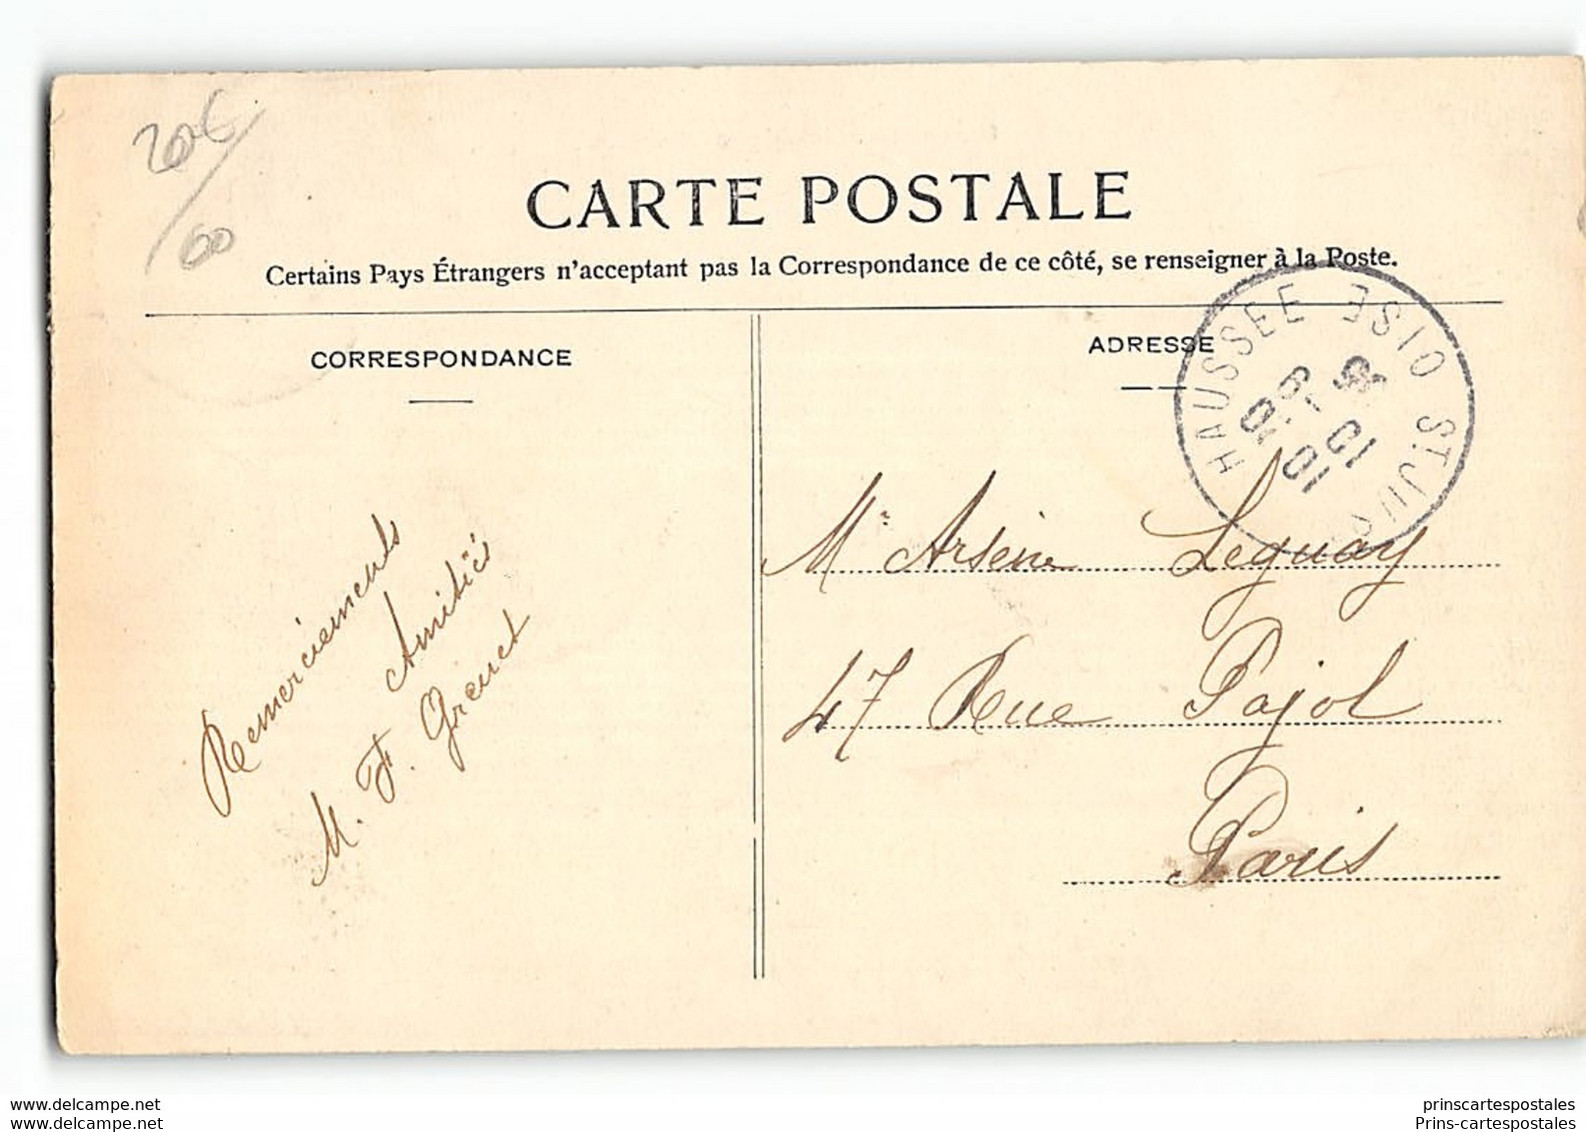 20€
60
CARTE POSTALE
Certains Pays Étrangers n'acceptant pas la Correspondance de ce côté, se renseigner à la Poste.
CORRESPONDANCE
ADRESSE
ST JUST HAUSSEE OISE
10
Remerciements
Amitiés
M. F. Grenet
Mr Arsène Leguay
47 Rue Pajol
Paris
www.delcampe.net
www.delcampe.net
prinscartespostales
Prins-cartespostales